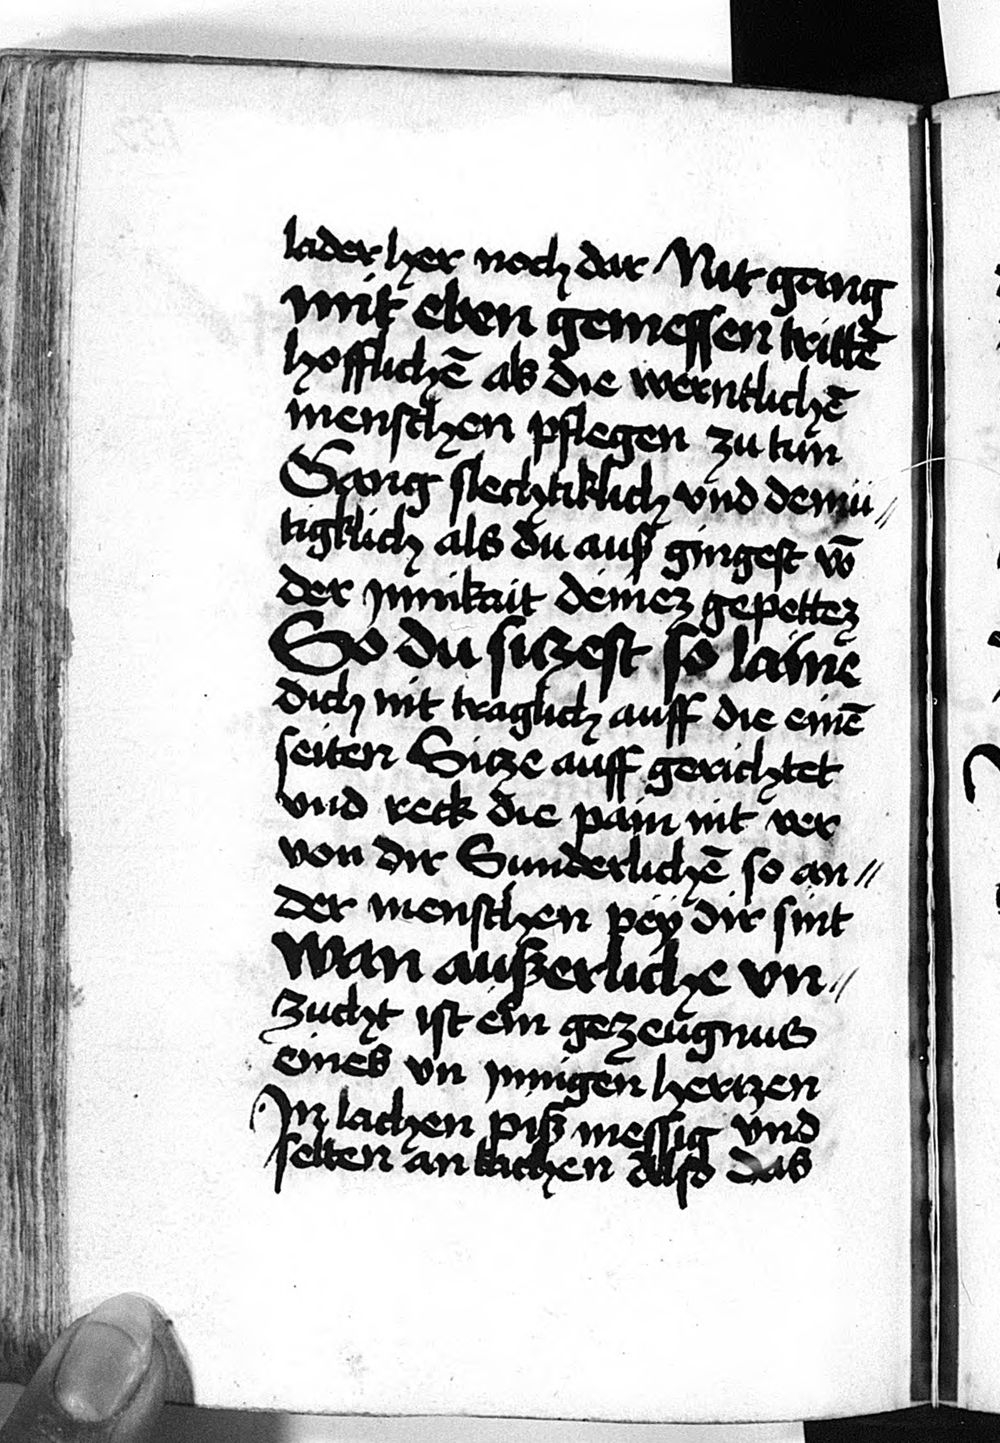 lader her noch dar Nit gang
mit eben gemessen trittē
hofflichē als die werntlichē
menschen pflegen zu tun
Gang slechtiklich vnd demü//
tigklich als du auß gingest vō
der ynnikait deinez gepettez
So du siczest so laine
dich nit traglich auff die einē
seiten Sicze auff gerichtet
vnd reck die pain nit ver
von dir Sunderlichē so an//
der menschen pey dir sint
Wan außerliche vn//
zucht ist ein gezeugnus
eines vn ynnigen hertzen
In lachen piß messig vnd
selten an lachen also das